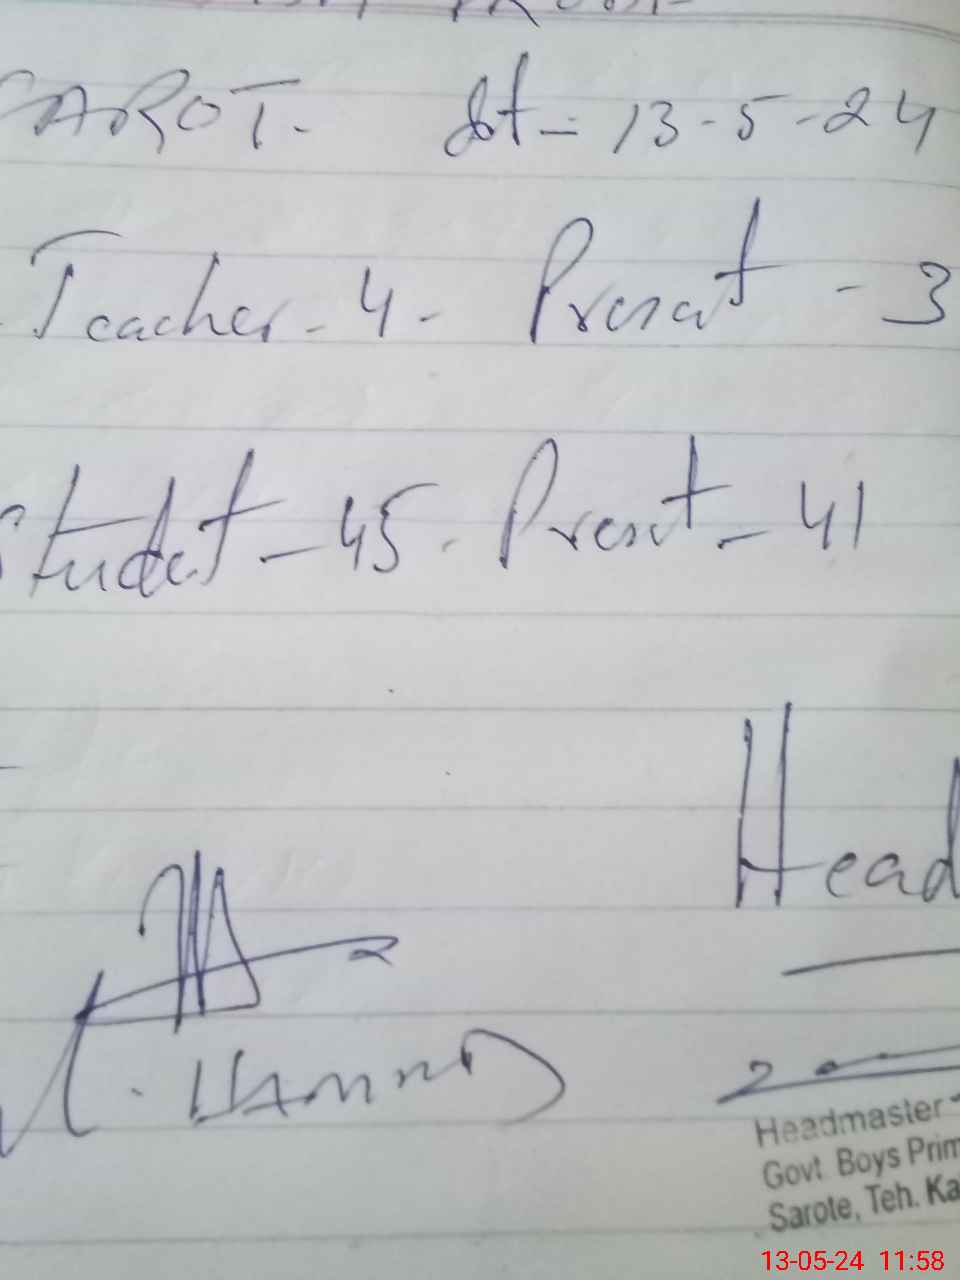 SAROT. dt - 13-5-24
Teacher - 4 - Presat - 3
Studet - 45 - Presat - 41
Head
Headmaster
Govt. Boys Prim
Sarote, Teh. Ka
13-05-24 11:58